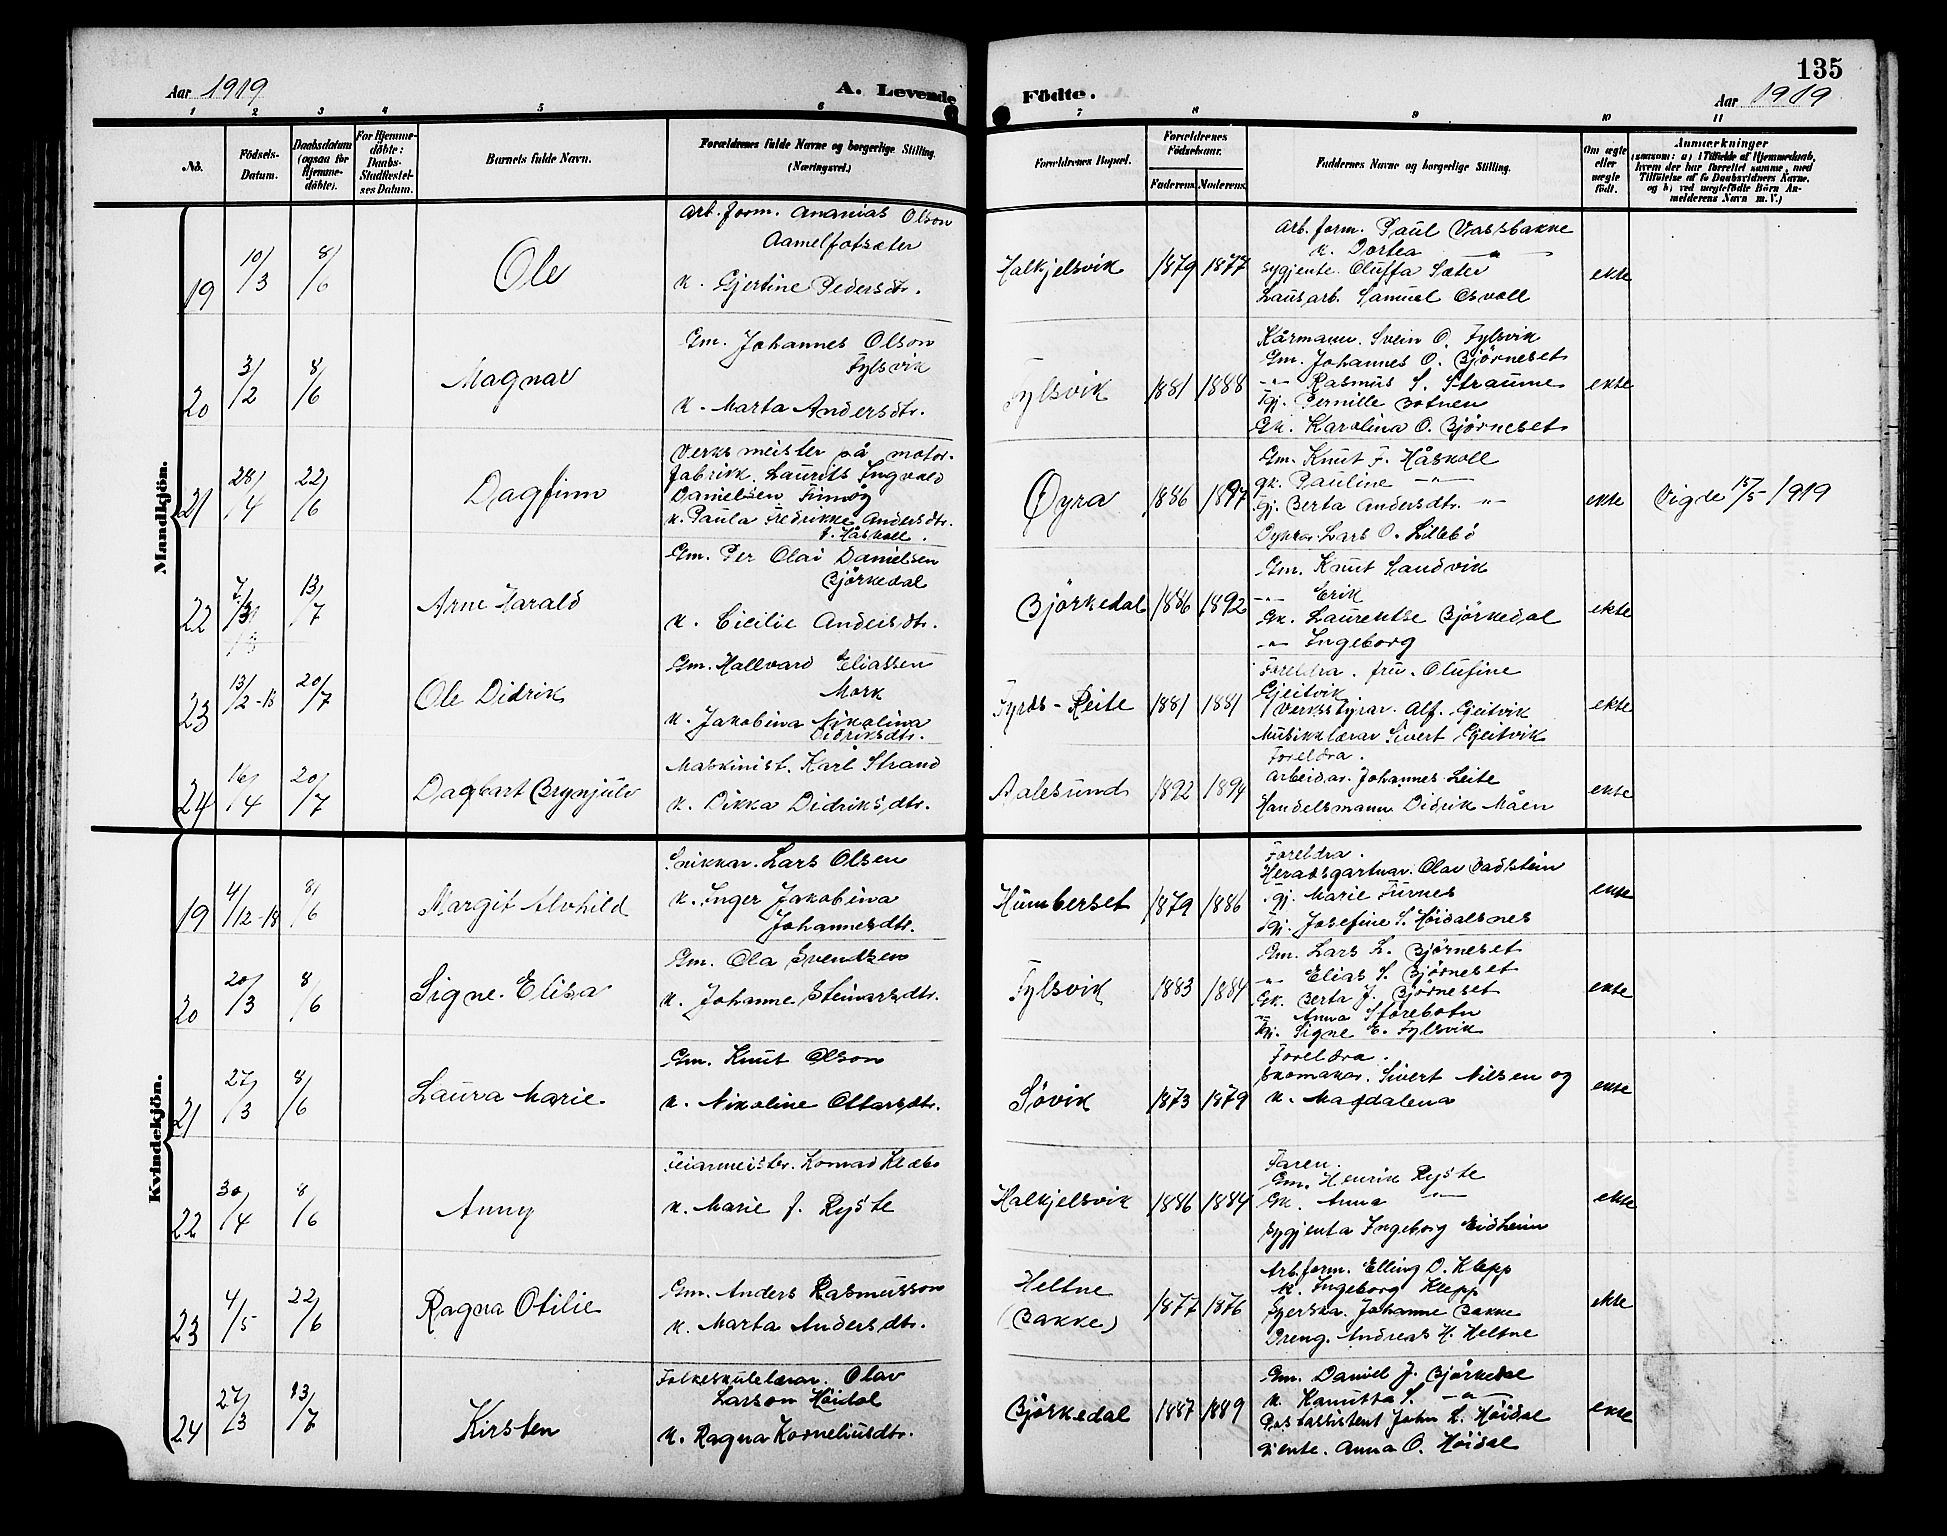 135
Aar 1919
A. Levende Födte.
Aar 1919
1 2 3 4 5 6 7 8 9 10 11
No.
Födsels-
Datum.
Daabsdatum
(ogsaa for
Hjemme-
döbte).
For Hjemme-
döbte:
Daabs-
Stadfestel-
ses Datum.
Barnets fulde Navn.
Forældrenes fulde Navne og borgerlige Stilling.
(Næringsvei.)
Forældrenes Bopæl.
Forældrenes
Födselsaar.
Faderens. Moderens.
Faddernes Navne og borgerlige Stilling.
Om ægte
eller
uægte
födt.
Anmærkninger
(saasom: a) i Tilfælde af Hjemmedaab,
hvem der har forrettet samme, med
Tilföielse af to Daabsvidners Navne.
og b) ved uægtefödte Börn An-
melderens Navn m. V.)
Mandkjön.
19 10/3 8/6 Ole
Arb. form. Ananias Olson
Aamelfotsæter
k. Gjertine Pedersdtr.
Halkjelsvik 1879 1877
Arb. form. Paul Vassbakke
k. Dortea —"—
Sygjente. Oluffa Sæter
Lausarb. Samuel Osvoll
ekte
20 3/2 8/6 Magnar
Gm. Johannes Olson
Fylsvik
k. Marta Andersdtr.
Fylsvik 1881 1888
Kårmann. Svein O. Fylsvik
Gm. Johannes O. Björneset
-"- Rasmus S. Straume
Tgj. Pernille Botnen
Gk. Karolina O. Björneset
ekte
21 28/4 22/6 Dagfinn
Verksmeister på motor-
fabrikk. Laurits Ingvald
Danielsen
k. Paula Fredrikke Andersdtr.
f. Håskoll.
Öyra 1886 1897
Gm. Knut F. Håskoll
gk. Pauline —"—
Gj. Berta Andersdtr. —"—
Lars O. Lillebö
ekte
Vigde 15/5-1919
22 7/3 13/7 Arne Harald
Gm. Per Olai Danielsen
Björkedal
k. Cicilie Andersdtr.
Björkedal 1886 1892
Gm. Knut Sandvik
-"- Erik
Gk. Laurentse Björkedal
-"- Ingeborg
ekte
23 13/2-18 20/7 Ole Didrik
Gm. Hallvard Eliassen
Mork
k. Jakobina Nikolina
Didriksdtr.
Fyrds-Reite 1881 1881
Foreldra. fru. Olufine
Gjeitvik
Verksstyrar. Alf. Gjeitvik
Musikklærar Sivert Gjeitvik
ekte
24 16/4 20/7 Dagbart Brynjulv
Maskinist. Karl Strand
k. Dikka Didriksdtr.
Aalesund 1892 1894
Foreldra.
Arbeidar. Johannes Leite
Handelsmann Didrik Måen
ekte
Kvindekjön.
19 4/12-18 8/6 Margit Alvhild
Snikkar. Lars Olsen
k. Inger Jakobina
Johannesdtr.
Humberset 1879 1886
Foreldra.
Heradsgartnar. Olav Vadstein
Tgj. Marie Furnes
Tgj. Josefine S. Höidalsnes
ekte
20 20/3 8/6 Signe. Elisa
Gm. Ola Svendsen
k. Johanne Steinarsdtr.
Fylsvik 1883 1884
Gm. Lars L. Björneset
-"- Elias S. Björneset
Gk. Berta J. Björneset
-"- Anna Störebotn
Gj. Signe E. Fylsvik
ekte
21 27/3 8/6 Laura Marie
Gm. Knut Olson
k. Nikoline Ottarsdtr.
Sövik 1873 1879
Foreldra.
Skomakar. Sivert Nilsen og
k. Magdalena
ekte
22 30/4 8/6 Anny
Feiarmeister. Konrad Klæbo
k. Marie f. Ryste
Halkjelsvik 1886 1884
Faren.
Gm. Henrik Ryste
Gk. Anna —"—
Sygjenta Ingeborg Eidheim
ekte
23 4/5 22/6 Ragna Otilie
Gm. Anders Rasmusson
k. Marta Andersdtr.
Heltne
(Bakke) 1877 1876
Arb. form. Elling D. Klepp
k. Ingeborg Klepp
Syerska. Johanne Bakke
Dreng. Andreas H. Heltne
ekte
24 27/3 13/7 Kirsten
Folkeskulelærar. Olav
Larson Höidal
k. Ragna Korneliusdtr.
Björkedal 1887 1889
Gm. Daniel J. Björkedal
k. Kanutta S. —"—
Postassistent John L. Höidal
Gjente. Anna O. Höidal
ekte